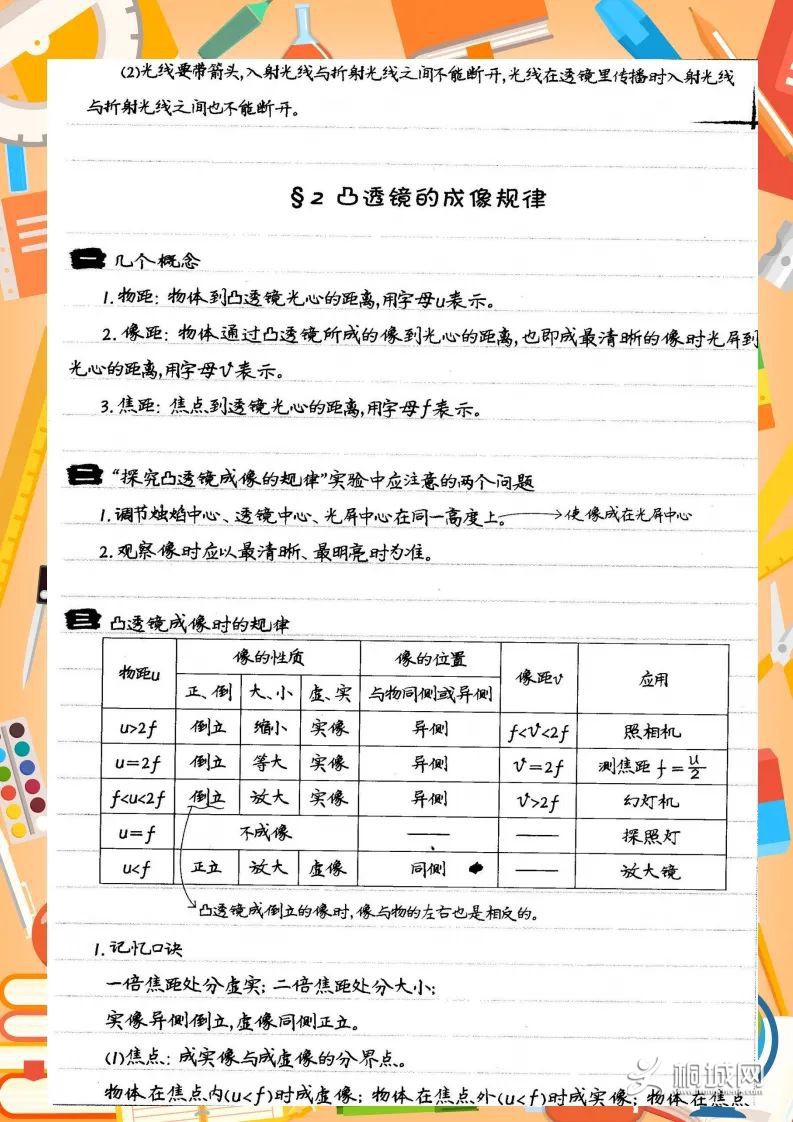 (2)光线要带箭头,入射光线与折射光线之间不能断开,光线在透镜里传播时入射光线
与折射光线之间也不能断开。
§2 凸透镜的成像规律
一 几个概念
1.物距：物体到凸透镜光心的距离,用字母u表示。
2.像距：物体通过凸透镜所成的像到光心的距离,也即成最清晰的像时光屏到
光心的距离,用字母v表示。
3.焦距：焦点到透镜光心的距离,用字母f表示。
二 “探究凸透镜成像的规律”实验中应注意的两个问题
1.调节烛焰中心、透镜中心、光屏中心在同一高度上。→使像成在光屏中心
2.观察像时应以最清晰、最明亮时为准。
三 凸透镜成像时的规律
物距u 像的性质 像的位置 像距v 应用
正、倒 大、小 虚、实 与物同侧或异侧
u>2f 倒立 缩小 实像 异侧 f<v<2f 照相机
u=2f 倒立 等大 实像 异侧 v=2f 测焦距 f=u/2
f<u<2f 倒立 放大 实像 异侧 v>2f 幻灯机
u=f 不成像 —— —— 探照灯
u<f 正立 放大 虚像 同侧 —— 放大镜
凸透镜成倒立的像时,像与物的左右也是相反的。
1.记忆口诀
一倍焦距处分虚实；二倍焦距处分大小；
实像异侧倒立,虚像同侧正立。
(1)焦点：成实像与成虚像的分界点。
物体在焦点内(u<f)时成虚像；物体在焦点外(u<f)时成实像；物体在焦点
桐城网